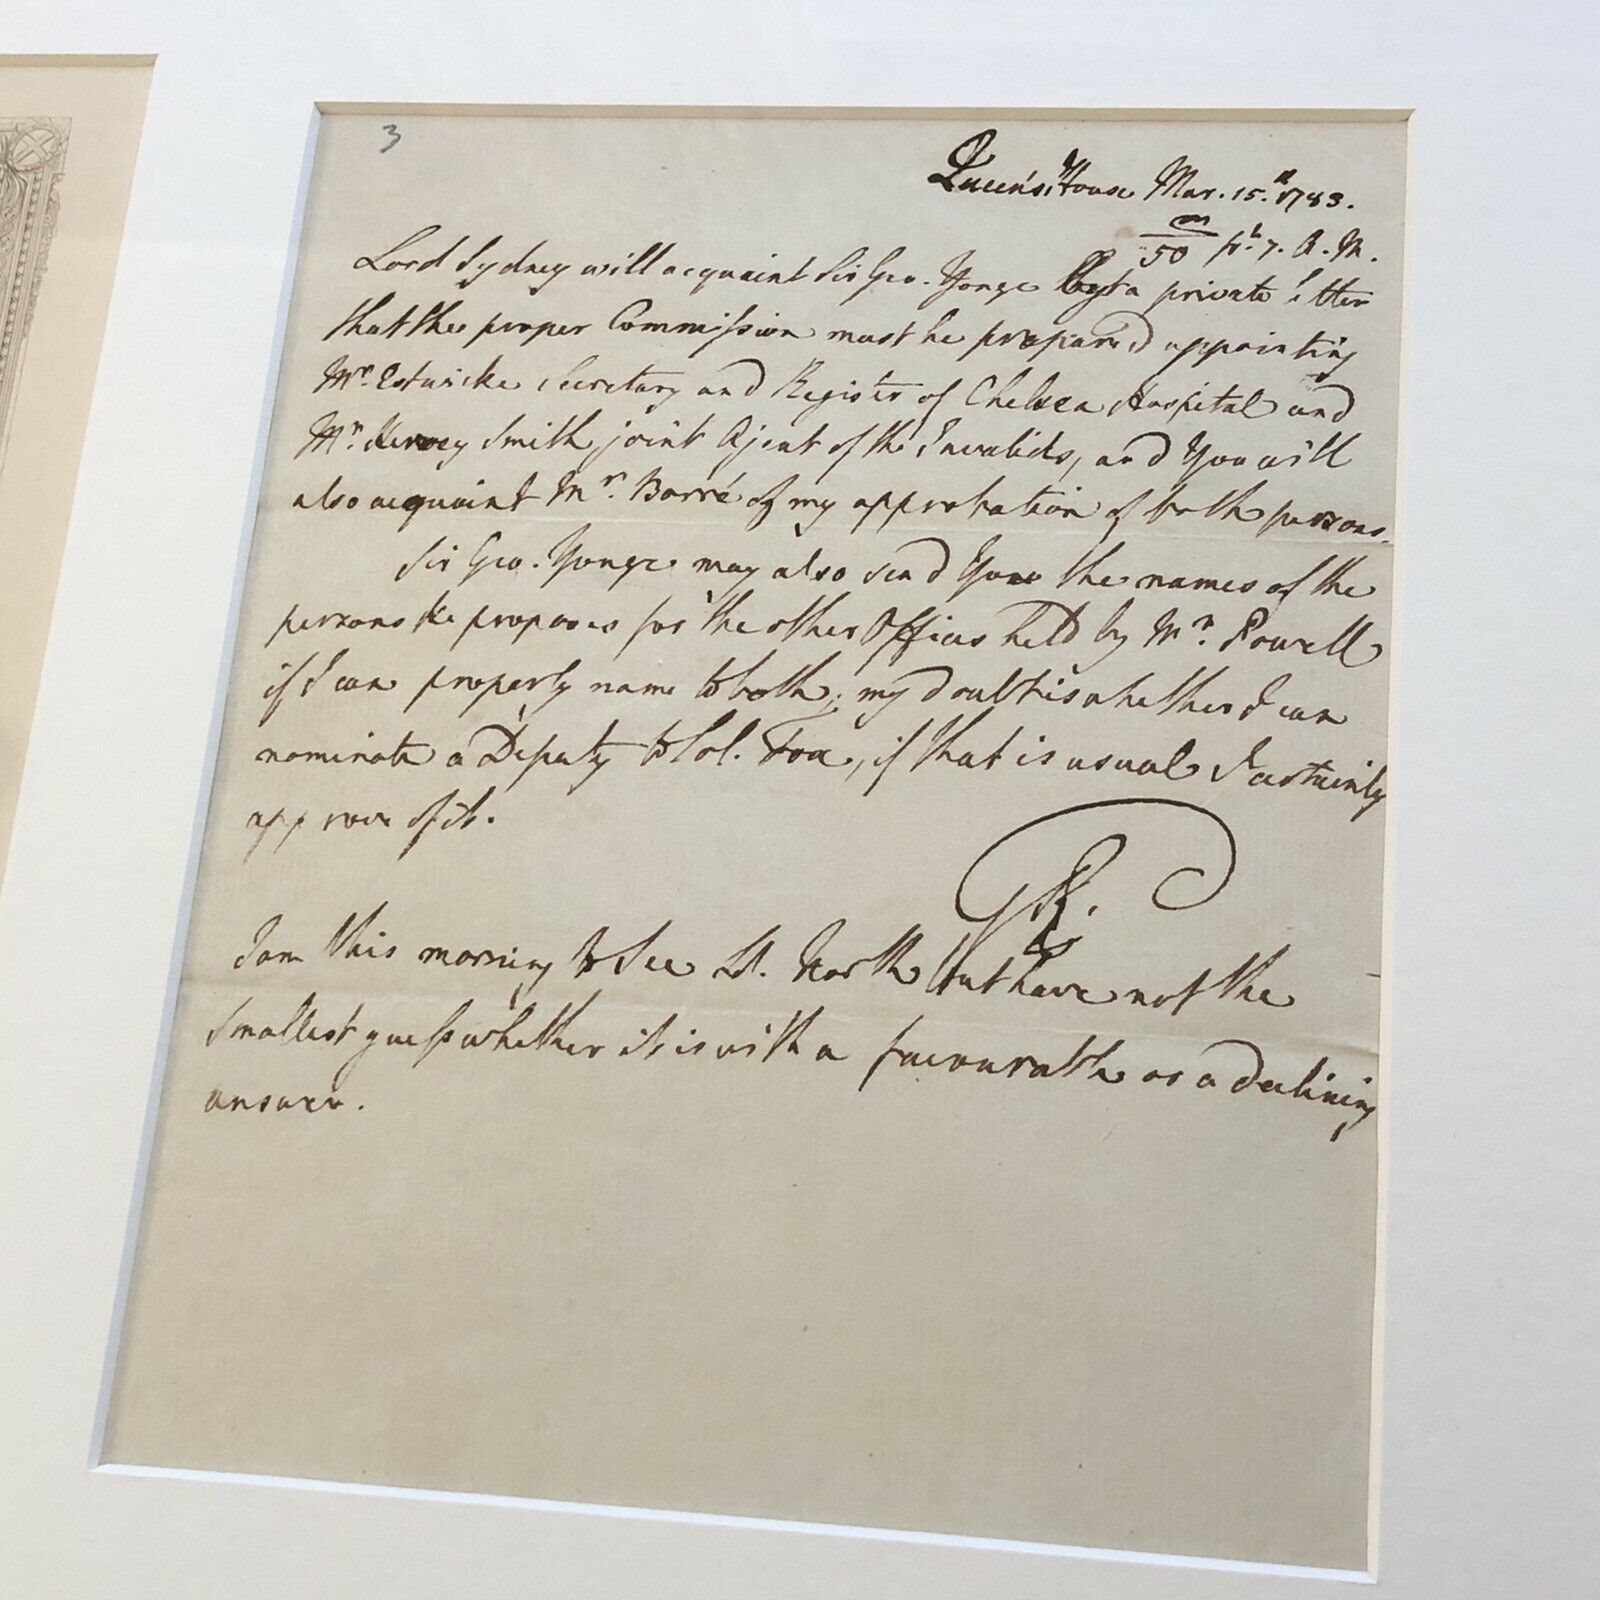 3
Queen's House Mar. 15.th 1783.
m/50 pt. 7. A.M.
Lord Sydney will acquaint Sir Geo. Yonge by a private letter
that the proper Commission must be prepared appointing
Mr. Estwicke Secretary and Register of Chelsea Hospital and
Mr. Hervey Smith joint Agent of the Invalids, and You will
also acquaint Mr. Barré of my approbation of both persons.
Sir Geo. Yonge may also send You the names of the
persons He proposes for the other Offices held by Mr. Powell
if I can properly name to both; my doubt is whether I can
nominate a Deputy to Col. Fox, if that is usual I certainly
approve of it.
GR.
I am this morning to See Ld. North but have not the
smallest guess whether it is with a favourable or a declining
answer.